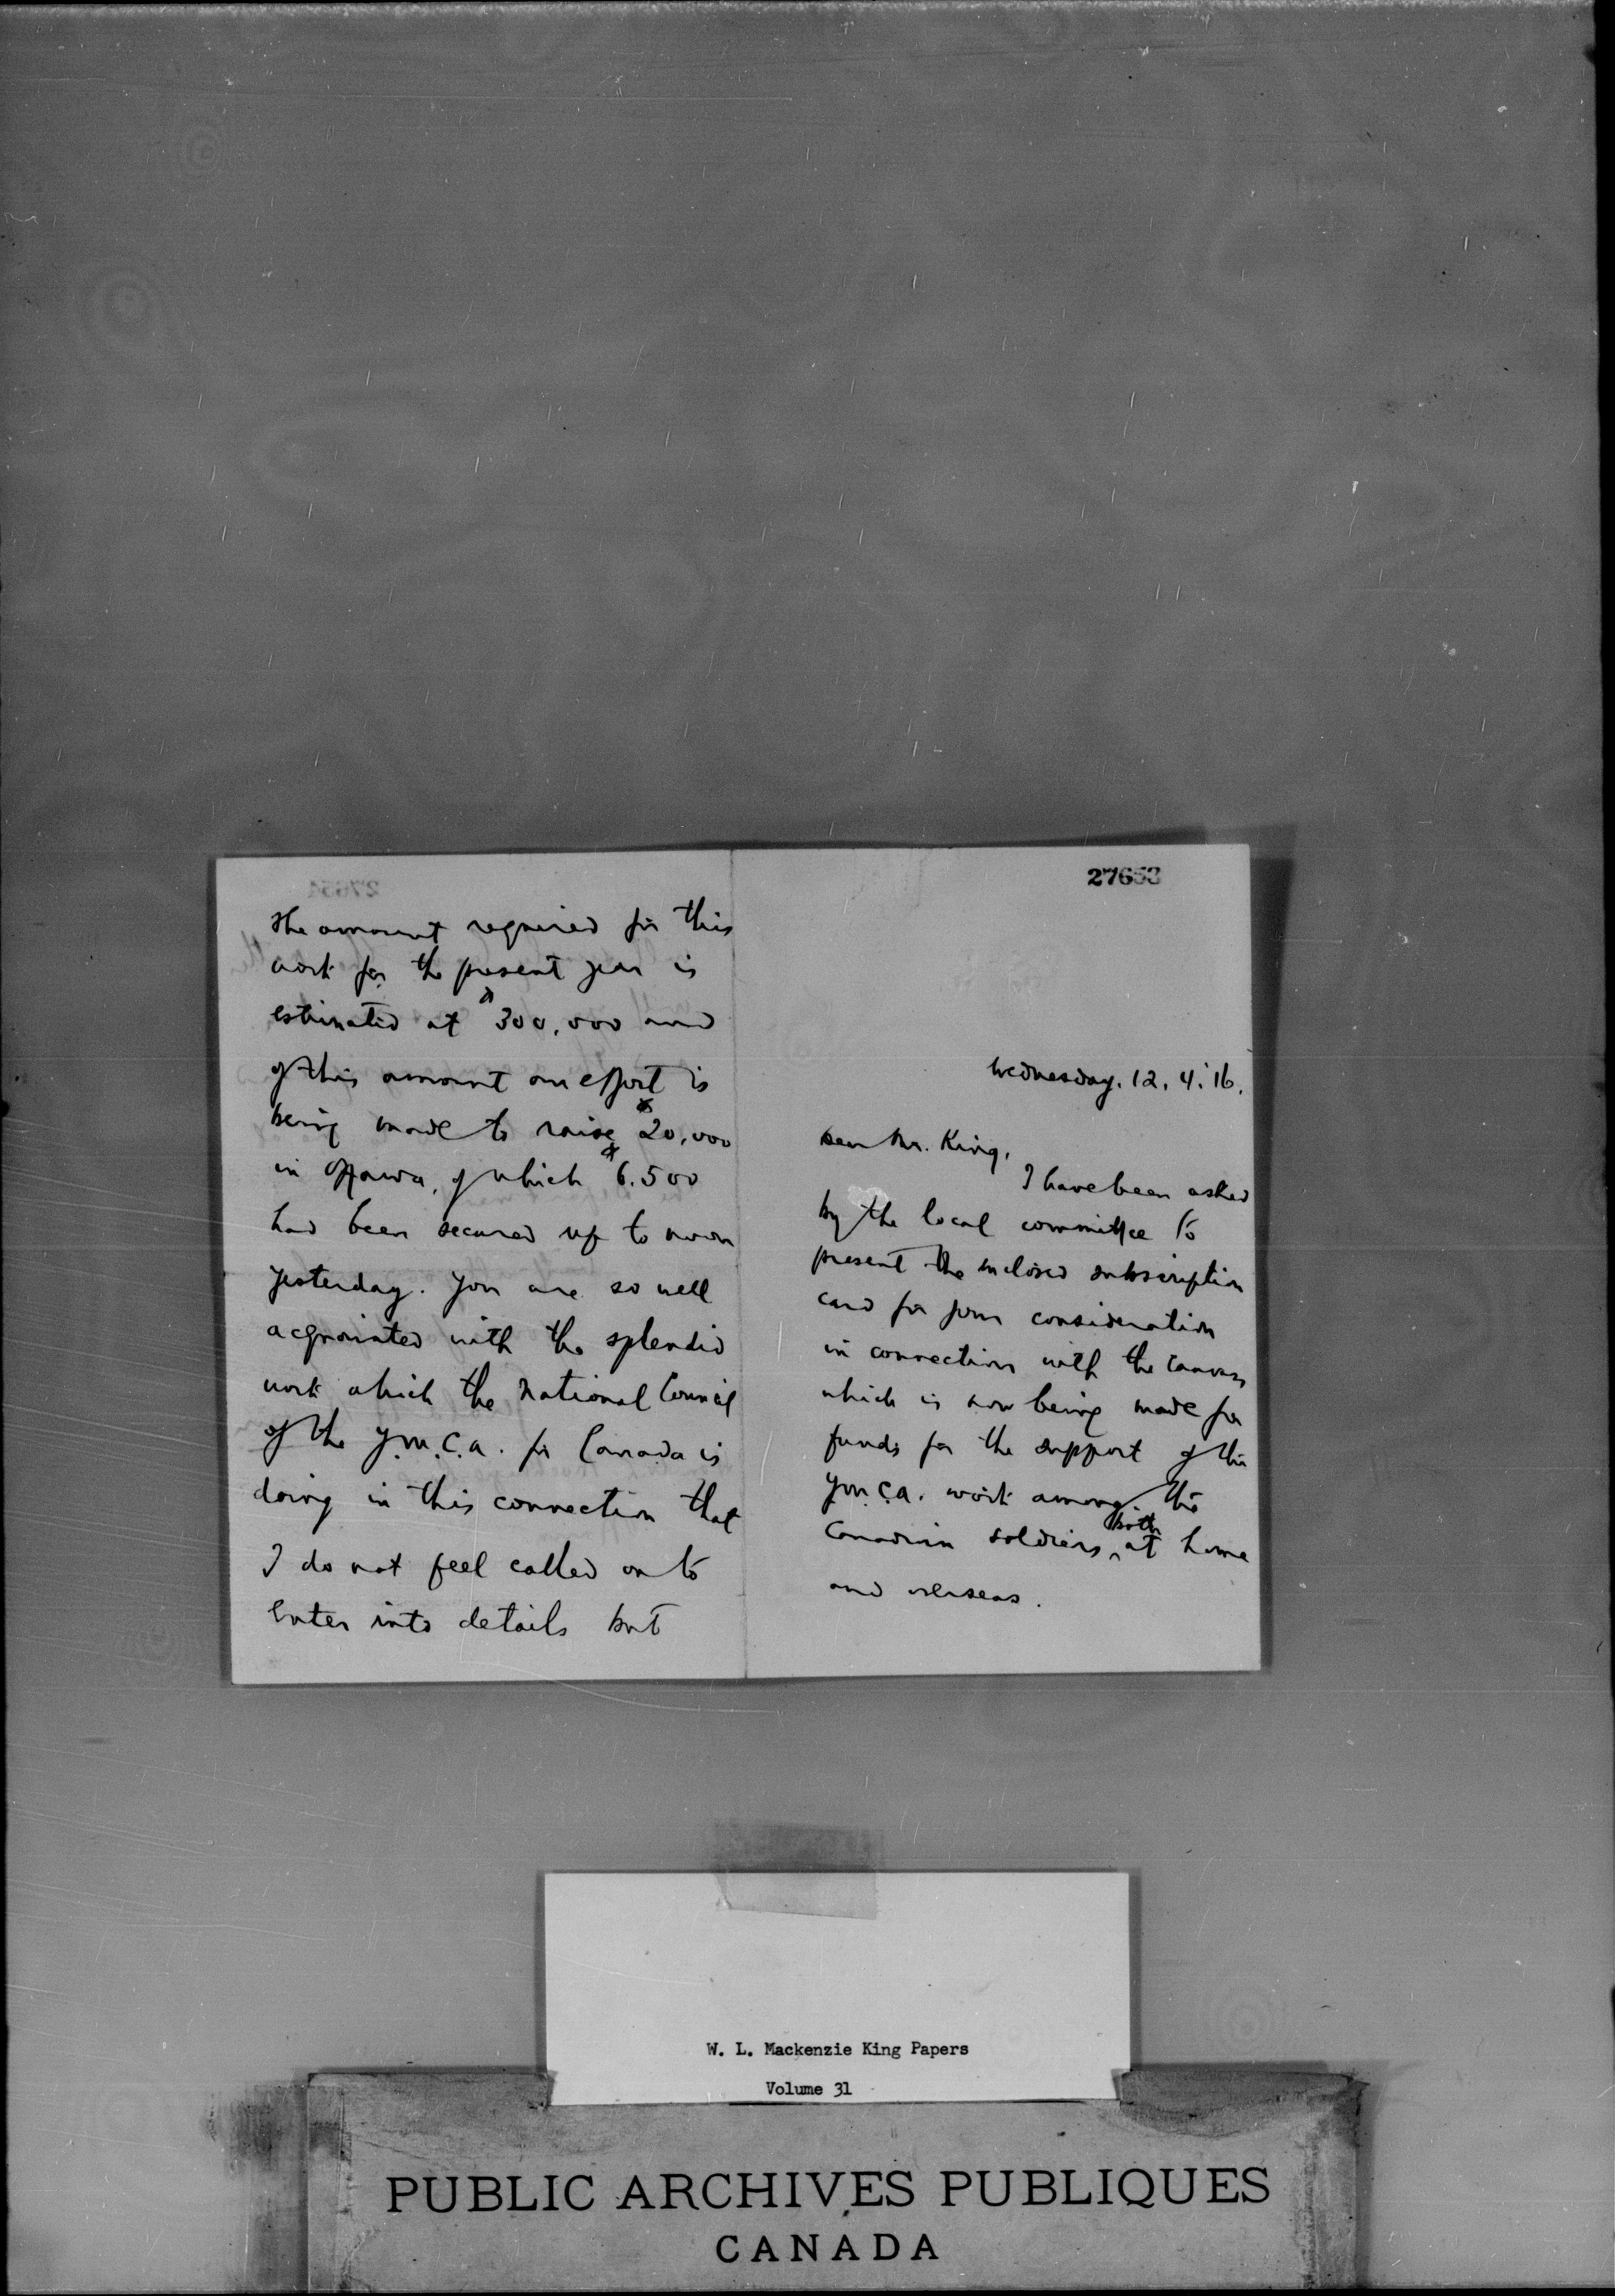 27653
Wednesday. 12. 4. '16.
Dear Mr. King,
I have been asked
by the local committee to
present the inclosed subscription
card for your consideration
in connection with the canvass
which is now being made for
funds for the support of the
Y.M.C.A. work among the
Canadian soldiers, both at home
and overseas.
The amount required for this
work for the present year is
estimated at $300,000 and
of this amount an effort is
being made to raise $20,000
in Ottawa, of which $6.500
had been secured up to noon
yesterday. You are so well
acquainted with the splendid
work which the National Council
of the Y.M.C.A. for Canada is
doing in this connection that
I do not feel called on to
enter into details but
W. L. Mackenzie King Papers
Volume 31
PUBLIC ARCHIVES PUBLIQUES
CANADA